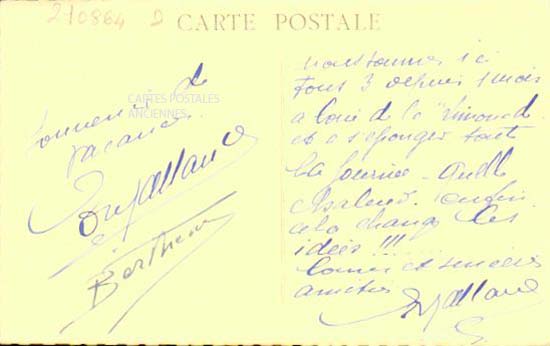 210864 D
CARTE POSTALE
CARTES POSTALES
ANCIENNES
Souvenir de
vacances
Berthem
nous sommes ici
tous 3 depuis 1 mois
a boire de la "Limonade
et a s'éponger toute
la journée - quelle
chaleur. enfin
cela change les
idées !!!
bonnes et sincères
amitiés